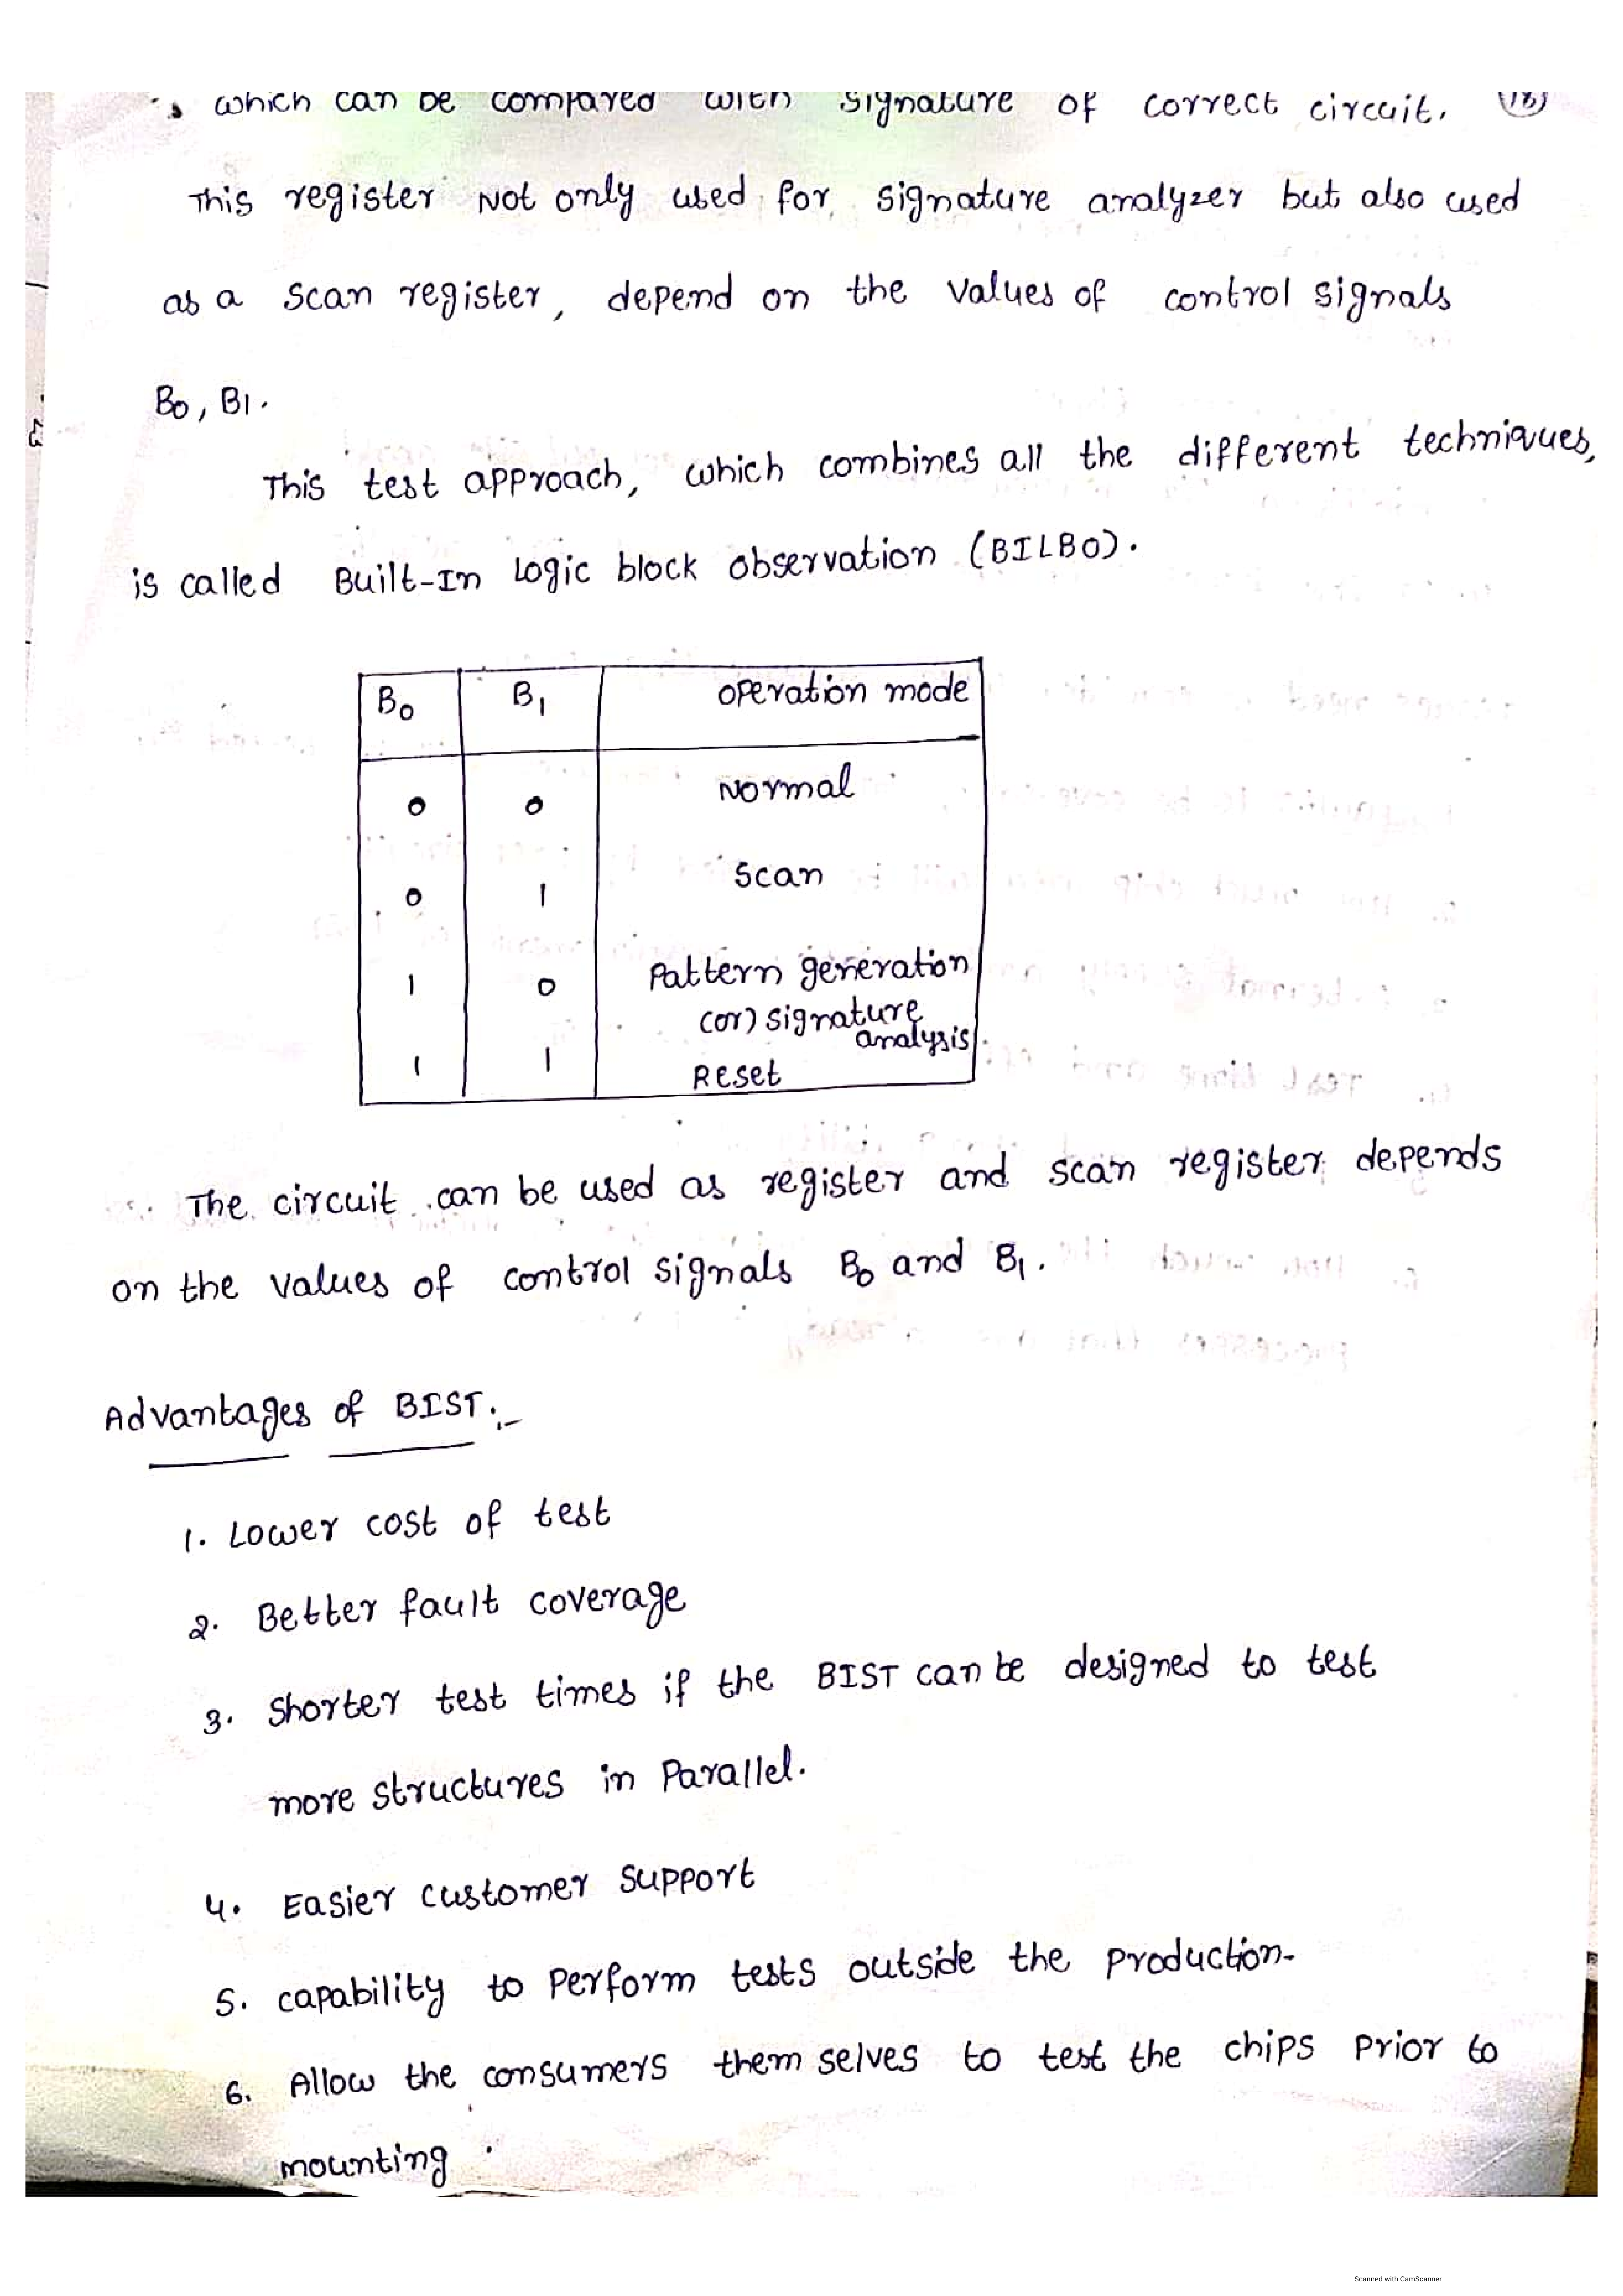 , which can be compared with signature of correct circuit. (18)
This register Not only used for signature analyzer but also used
as a scan register, depend on the values of control signals
B0, B1.
23
This test approach, which combines all the different techniques,
is called Built-In Logic block observation (BILBO).
B0 B1 operation mode
0 0 Normal
0 1 Scan
1 0 Pattern generation
(or) signature
analysis.
1 1 Reset
The circuit can be used as register and scan register depends
on the values of control signals B0 and B1.
Advantages of BIST:-
1. Lower cost of test
2. Better fault coverage
3. Shorter test times if the BIST can be designed to test
more structures in Parallel.
4. Easier customer support
5. capability to Perform tests outside the production-
6. Allow the consumers them selves to test the chips prior to
mounting.
Scanned with CamScanner